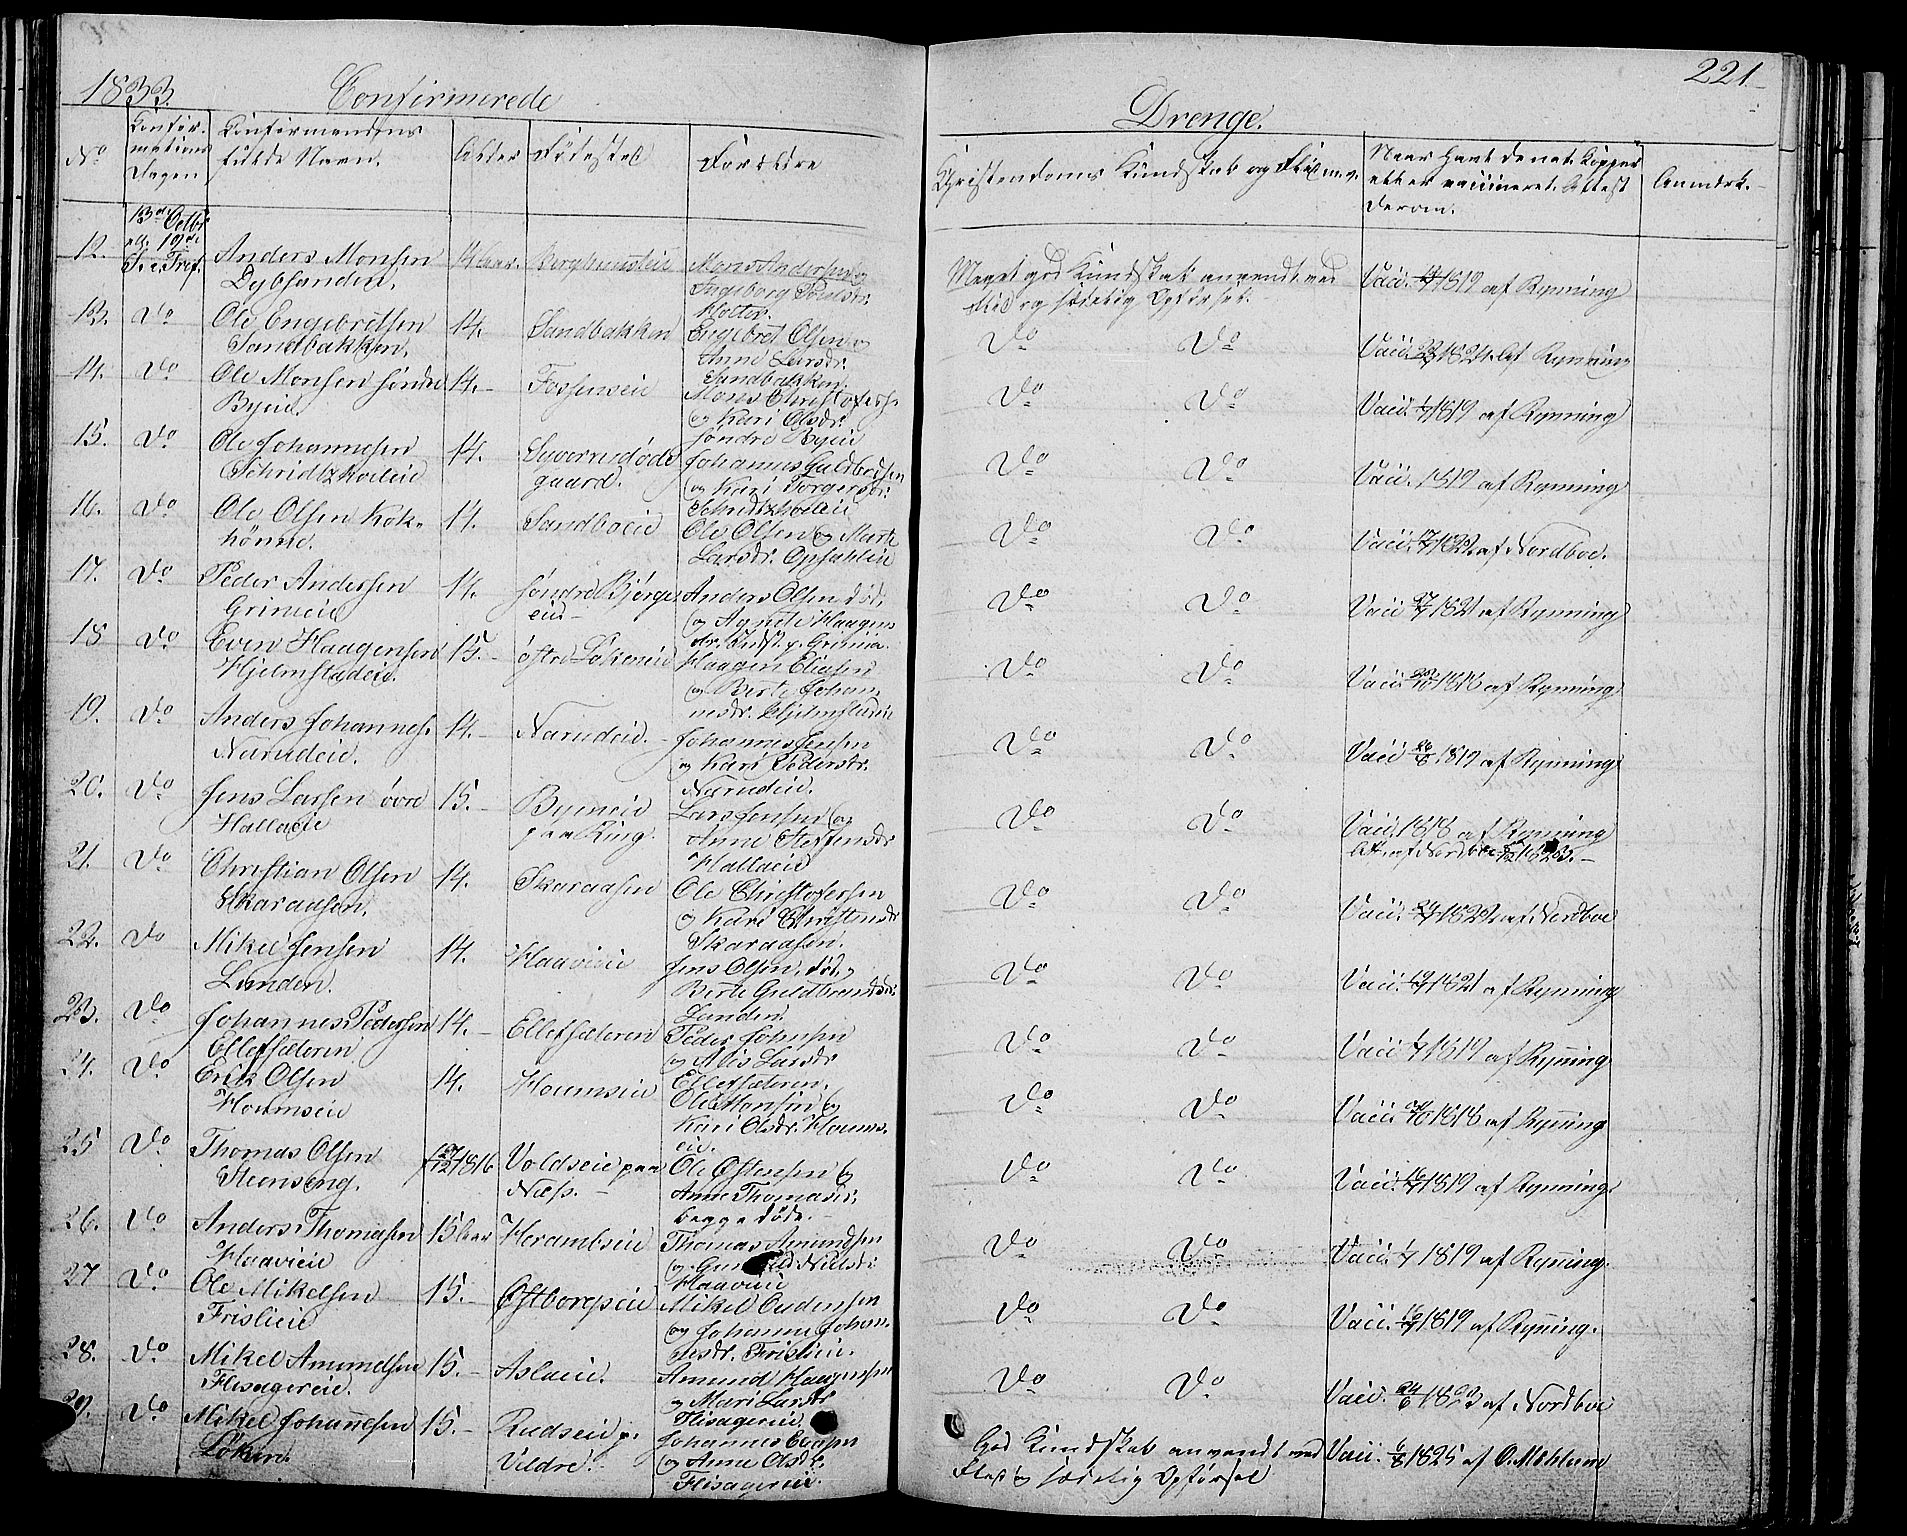 1833.
Confirmerede
Drenge.
221
No
Confir-
mations
Dagen
Confirmandens
fulde Navn.
Alder
Fødested
Forældre
Christendoms Kundskab og Flid m.v.
Naar havt de nat: Kopper
ell er vaccineret. Attest
derom.
Anmærk.
12.
13de Octbr
S. e. Tref.
Anders Monsen
Dybsanden.
14 Aar.
Mons Andersen og
Ingeborg Poulsdr.
Holter.
Meget god Kundskab anvendt med
Flid og sædelig Opførsel.
Vacc. 1819 af Rynning
13.
Do
Ole Engebretsen
Sandbakken.
14.
Sandbakken
Engebret Olsen og
Anne Larsdr.
Sandbakken.
Do Do
Vacc. 1824 af Rynning
14.
Do
Ole Monsen søndre
Byeie.
14.
Fossenseie
Mons Christofers.
og Kari Olsdr.
søndre Byeie
Do Do
Vacc. 1/7 1819 af Rynning
15.
Do
Ole Johannesen
14.
gaard.
Johannes Guldbrdsen
og Kari Torgersdr.
Do Do
Vacc. 1819 af Rynning
16.
Do
Ole Olsen Kok-
hønne.
14.
Sandboeie
Ole Olsen og Marte
Larsdr. Opsahleie
Do Do
Vacc. af Nordboe.
17.
Do
Peder Andersen
Grimeie
14.
søndre Bjørge
eie
Anders Olsen død,
og Agnete Haagens
Do Do
Vacc. 1821 af Rynning
18
Do
Even Haagensen
Hjelmstadeie.
15.
østre Løkeneie
Haagen Eliasen
og Berte Johan
nesdr. Hjelmstadeie
Do Do
Vacc. 1818 af Rynning
19.
Do
Anders Johannes.
Narudeie.
14.
Narudeie.
Johannes Jensen
og Kari Pedersdr.
Narudeie.
Do Do
Vacc. 1819 af Rynning
20.
Do
Jens Larsen øvre
Hallaeie
15.
Byeneie
paa Ring.
Lars Jensen og
Anne Steffensdr
Hallaeie
Do Do
Vacc. 1818 af Rynning
Att. af Nordboe 1823.
21.
Do
Christian Olsen
Skaraasen.
14.
Skaraasen
Ole Christofersen
og Kari Christensdr
Skaraasen.
Do Do
Vacc. 1822 af Nordboe
22.
Do
Mikel Jensen
Lunden.
14.
Haavieie
Jens Olsen, død,
Berte Guldbrandsdr.
Lunden.
Do Do
Vacc. 1821 af Rynning
23.
Do
Johannes Pedersen
Ellefsæteren
14.
Ellefsæteren
Peder Johnsen
og Alis Larsdr
Ellefsæteren.
Do Do
Vacc. 1/7 1819 af Rynning
24.
Do
Erik Olsen
Houmseie
14.
Houmseie
Ole Monsen og
Kari Olsdr. Houms-
eie.
Do Do
Vacc. 1818 af Rynning
25
Do
Thomas Olsen
Steenseng.
1816
Voldseie paa
Næss.
Ole Østensen og
Anne Thomasdr.
begge døde.
Do Do
Vacc. 1819 af Rynning.
26.
Do
Anders Thomasen
Haavieie
15 Aar
Herambseie
Thomas Amundsen
Haavieie
Do Do
Vacc. 1/7 1819 af Rynning.
27
Do
Ole Mikelsen
Frislieie
15.
Østborgseie
Mikel Gudensen
og Johanne Johan-
nesdr. Frislieie.
Do Do
Vacc. 1819 af Rynning.
28.
Do
Mikel Amundsen
Flisagereie.
15.
Aslaeie.
Amund Haagensen
og Mari Larsdr
Flisagereie.
Do Do
Vacc. af Nordboe
29.
Do
Mikel Johannesen
Løken.
15.
Rudseie p.
Vildre.
Johannes Evensen
og Anne Olsdr.
Flisagereie.
God Kundskab anvendt med
Flid og sædelig Opførsel
Vacc. 1825 af O. Mæhlum